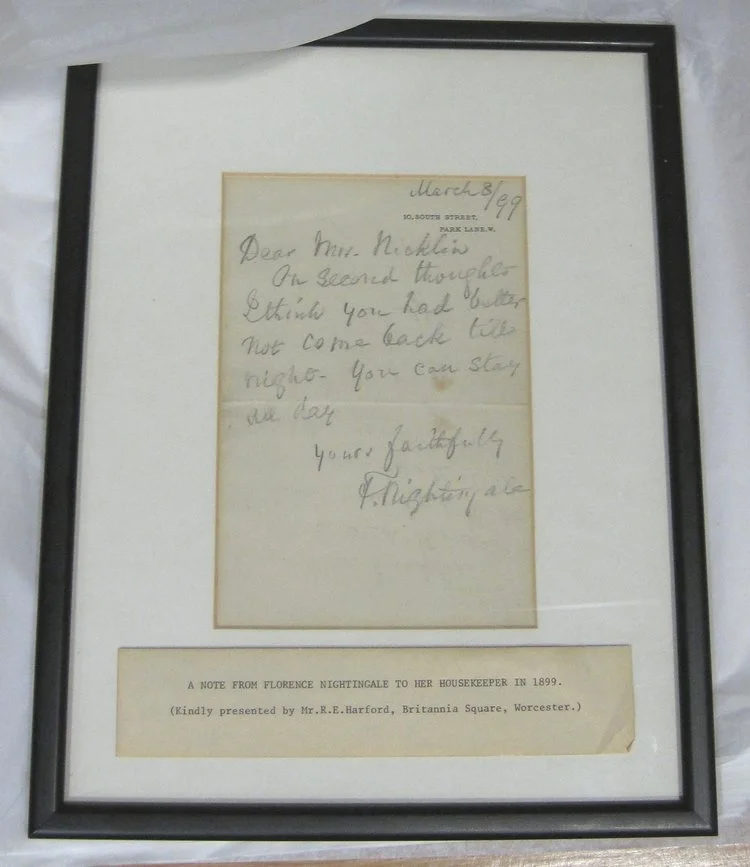 March 8/99
10, SOUTH STREET,
PARK LANE. W.
Dear Mrs. Nicklin
On second thoughts
I think you had better
not come back till
night - You can stay
all day
yours faithfully
F. Nightingale
A NOTE FROM FLORENCE NIGHTINGALE TO HER HOUSEKEEPER IN 1899.
(Kindly presented by Mr.R.E.Harford, Britannia Square, Worcester.)